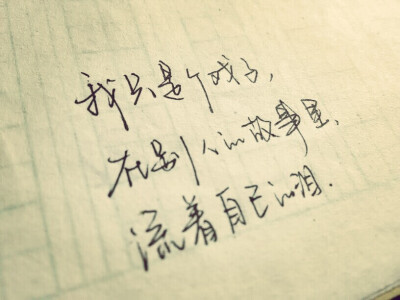 我只是个戏子,
在别人的故事里,
流着自己的泪.